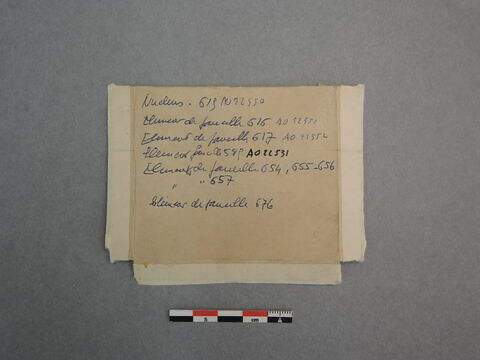 Nucleus - 613 AO 22550
Element de faucille 616 AO 22551
Element de faucille 617 AO 22552
Element faucille 589 AO 22531
Elements de faucille 654, 655-656
" " 657
Element de faucille 676
5 cm A